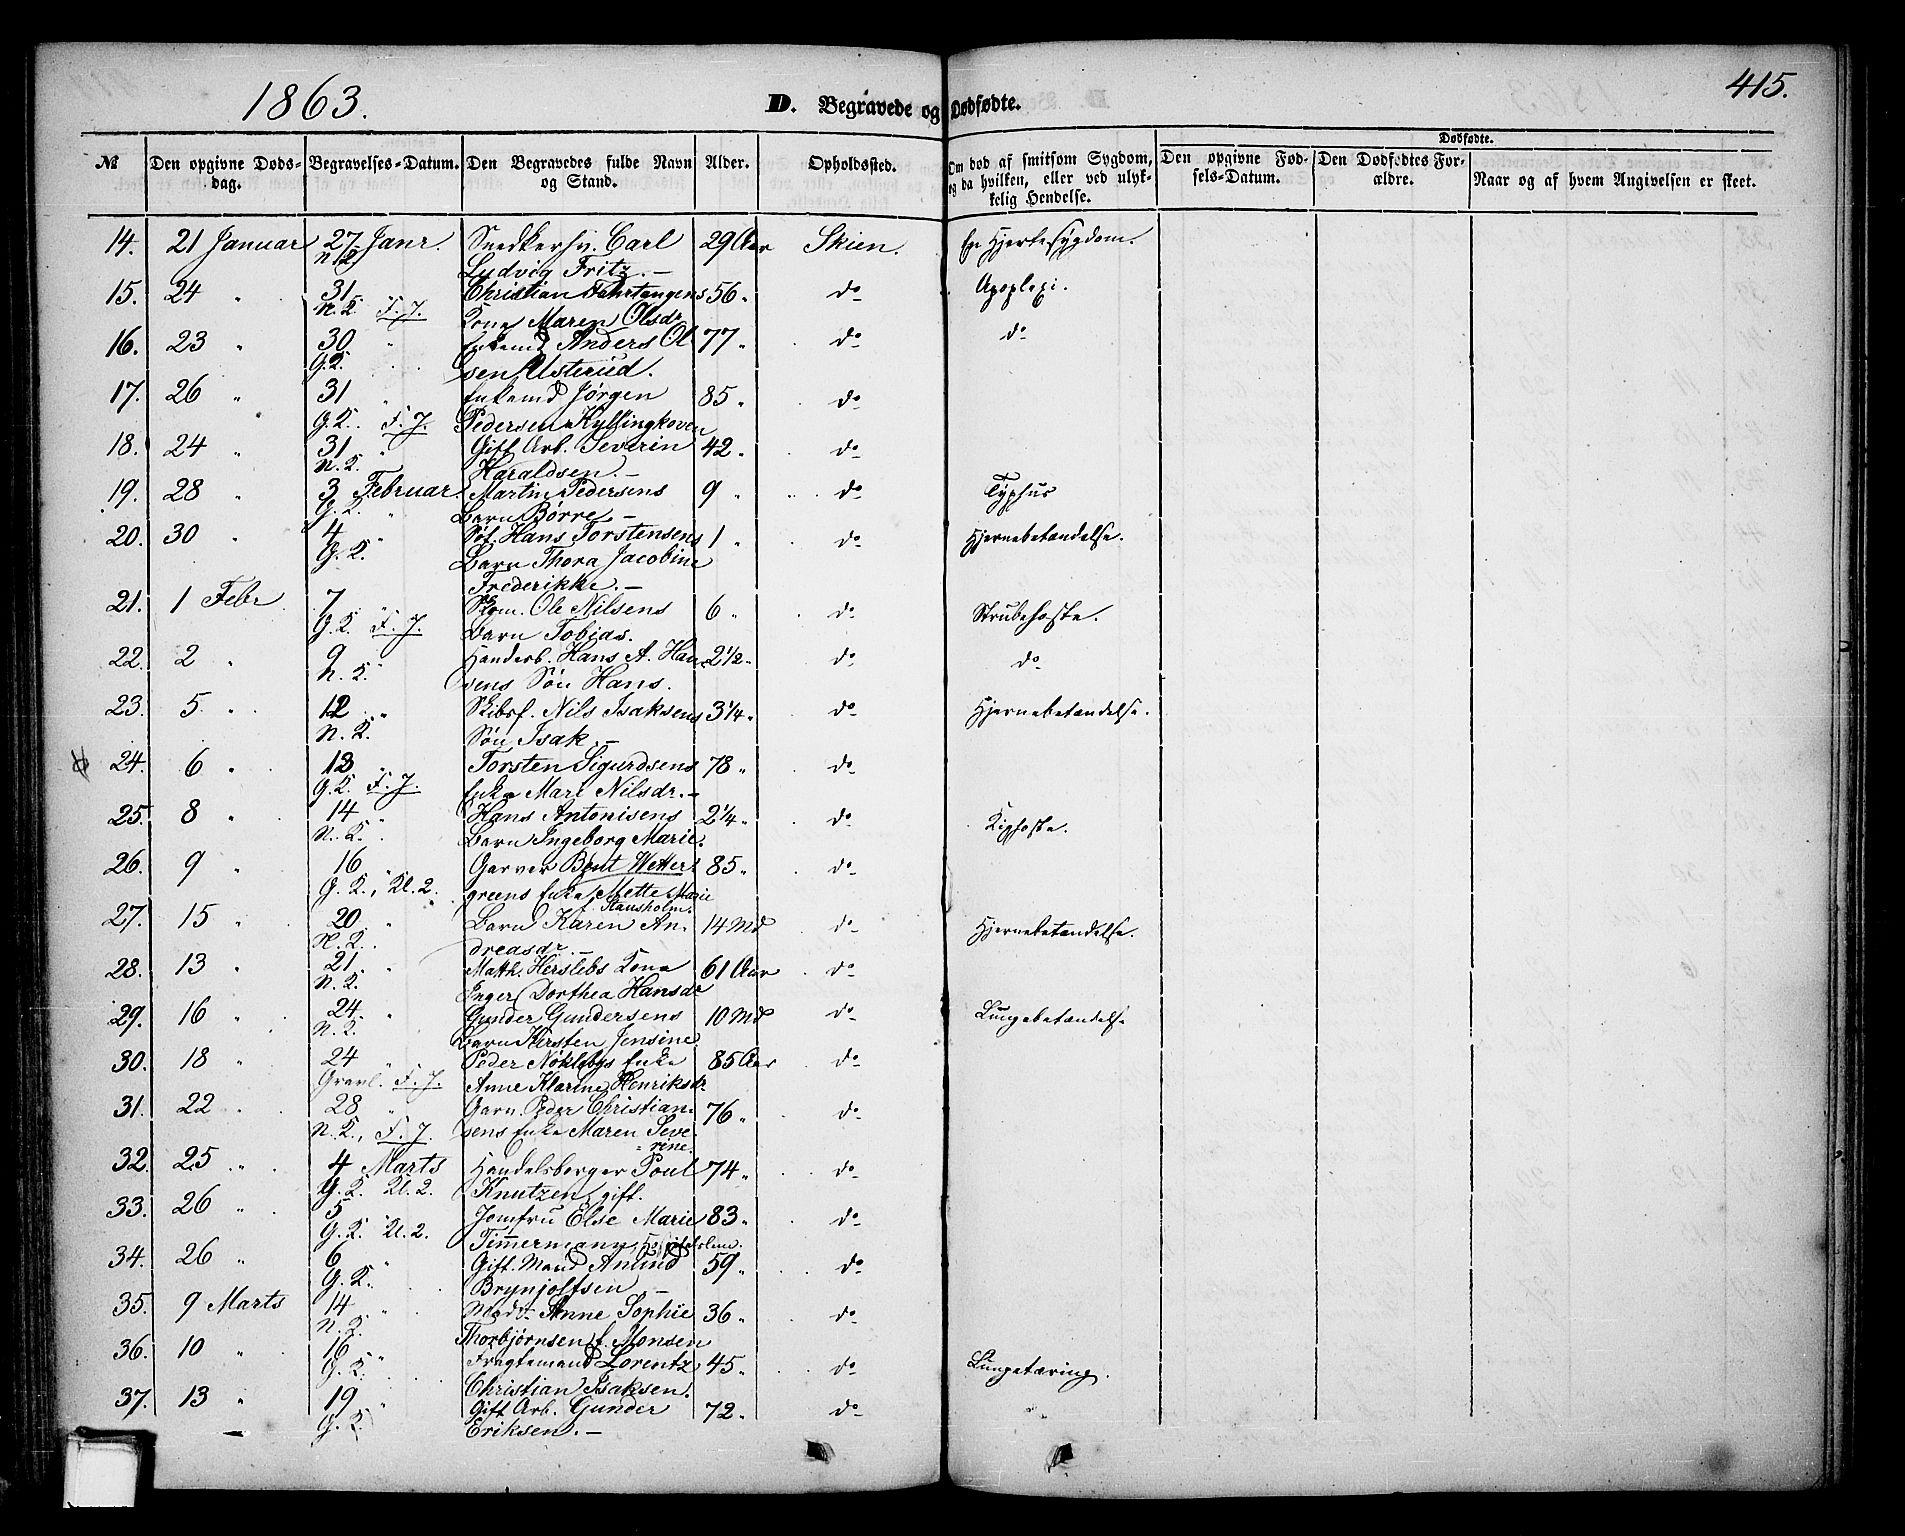 1863.
D. Begravede og Dødfødte.
415.
№
Den opgivne Døds-
dag.
Begravelses-Datum.
Den Begravedes fulde Navn
og Stand.
Alder.
Opholdssted.
Om død af smitsom Sygdom,
og da hvilken, eller ved ulyk-
kelig Hendelse.
Dødfødte.
Den opgivne Fød-
sels-Datum.
Den Dødfødtes For-
ældre.
Naar og af hvem Angivelsen er skeet.
14. 21 Januar 27 Janr. Snedkersv. Carl 29 Aar Skien. Hjertesygdom.
Ludvig Fritz.
15. 24 " 31 Christian Fahrtangens 56 " do Apoplexi.
N.K. F.J. Kone Maren Olsdr
16. 23 " 30 " Enkemd Anders Ol- 77 " do do
G.K. sen Ulsterud.
17. 26 " 31 " Enkemd Jørgen 85 " do
G.K. F.J. Pedersen Kyllingkoven
18. 24 " 31 " Gift Arb. Severin 42 " do
N.K. Haraldsen.
19. 28 " 3 Februar Martin Pedersens 9 " do Typhus
G.K. " Barn Børre
20. 30 " 4 " Hans Torstensens 1 " do Hjernebetændelse.
G.K. Barn Thora Jacobine
Frederikke.
21. 1 Febr 7 " Ole Nilsens 6 " do Strubehoste.
G.K. F.J. Barn Tobias.
22. 2 " 9 " Handerb. Hans A. Han- 2½ " do do
N.K. sens Søn Hans.
23. 5 " 12 " Skibsf. Nils Isaksens 3¼ " do Hjernebetændelse.
N.K. Søn Isak.
24. 6 " 13 " Torsten Sigurdsens 78 " do
G.K. F.J. Enke Mari Nilsdr.
25. 8 " 14 " Hans Antonisens 2¼ " do Kighoste.
N.K. Barn Ingeborg Marie.
26. 9 " 16 " Garver Bent Wetter- 85 " do
G.K., Kl. 2. greens Enke Mette Marie
Stausholm.
27. 15 " 20 " Barn Karen An- 14 Md do Hjernebetændelse.
N.K. dreasdr
28. 13 " 21 " Matth. Herslebs Kone 61 Aar do
N.K. Inger Dorthea Hansdr
29. 16 " 24 " Gunder Gundersens 10 Md do Lungebetændelse
N.K. Barn Kirsten Jensine
30. 18 " 24 " Peder Nøklebys Enke 85 Aar do
Gravl. F.J. Anne Klarine Henriksdr
31. 22 " 28 " Garv. Peder Christian- 76 " do
N.K., F.J. sens Enke Maren Seve-
rine.
32. 25 " 4 Marts Handelsborger Poul 74 " do
G.K. Kl. 2. Knutzen, gift.
33. 26 " 5 Jomfru Else Marie 83 " do
G.K. Kl. 2. Timmermann, Hospitalslem.
34. 26 " 6 " Gift Mand Amund 59 " do
G.K. Brynjolfsen
35. 9 Marts 14 " Anne Sophie 36 " do
N.K. Thorbjørnsen f. Monsen
36. 10 " 16 " Fragtemand Lorentz 45 " do Lungetæring.
G.K. Christian Isaksen.
37. 13 " 19 " Gift Arb. Gunder 72 " do
G.K. Eriksen.